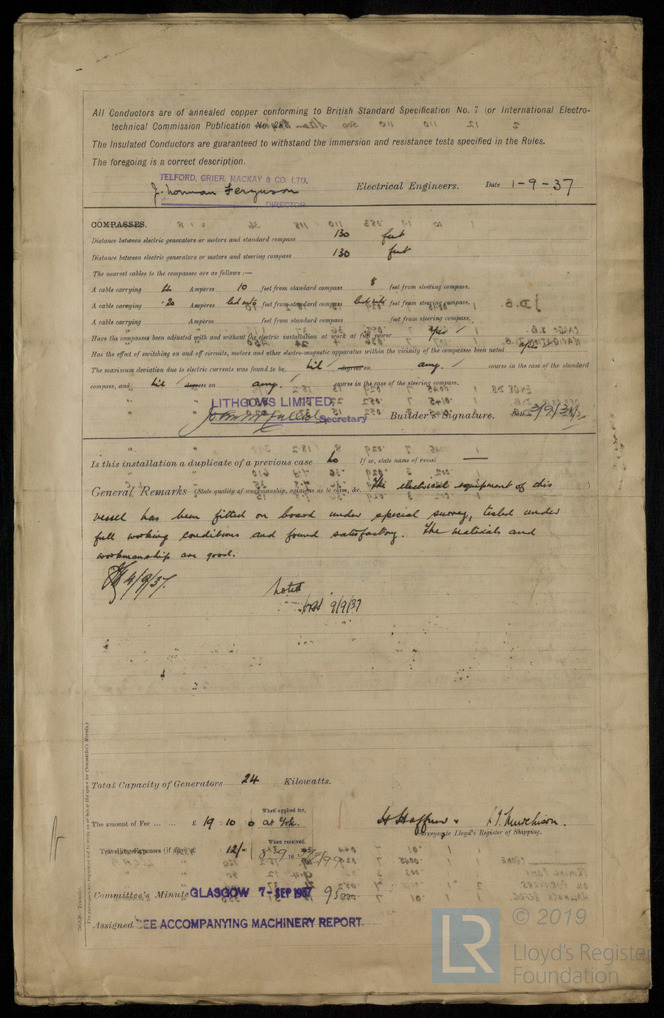 All Conductors are of annealed copper conforming to British Standard Specification No. 7 (or International Electro-
technical Commission Publication
The Insulated Conductors are guaranteed to withstand the immersion and resistance tests specified in the Rules.
The foregoing is a correct description.
TELFORD, GRIER, MACKAY & CO. LTD.
J. Norman Ferguson Electrical Engineers. Date 1-9-37
DIRECTOR
COMPASSES.
Distance between electric generators or motors and standard compass 130 feet
Distance between electric generators or motors and steering compass 130 feet
The nearest cables to the compasses are as follows :—
A cable carrying Amperes 10 feet from standard compass 8 feet from steering compass.
A cable carrying .20 Amperes led into feet from standard compass led into feet from steering compass.
A cable carrying Amperes feet from standard compass feet from steering compass.
Have the compasses been adjusted with and without the electric installation at work at full power yes
Has the effect of switching on and off circuits, motors and other electro-magnetic apparatus within the vicinity of the compasses been noted yes
The maximum deviation due to electric currents was found to be nil degrees on any course in the case of the standard
compass, and nil degrees on any course in the case of the steering compass.
LITHGOWS LIMITED,
Secretary Builder's Signature. Date
Is this installation a duplicate of a previous case No If so, state name of vessel —
General Remarks (State quality of workmanship, opinions as to claim, &c. The electrical equipment of this
vessel has been fitted on board under special survey, tested under
full working conditions and found satisfactory. The materials and
workmanship are good.
4/9/37.
Noted
9/9/37
Total Capacity of Generators 24 Kilowatts.
When applied for,
The amount of Fee ... £ 19 : 10 : 0
H. J. Hutchison.
Surveyor to Lloyd's Register of Shipping.
When received,
Travelling Expenses (if any) £ 12/-
Committee's Minute GLASGOW 7-SEP 1937
Assigned SEE ACCOMPANYING MACHINERY REPORT
© 2019
LR
Lloyd's Register
Foundation